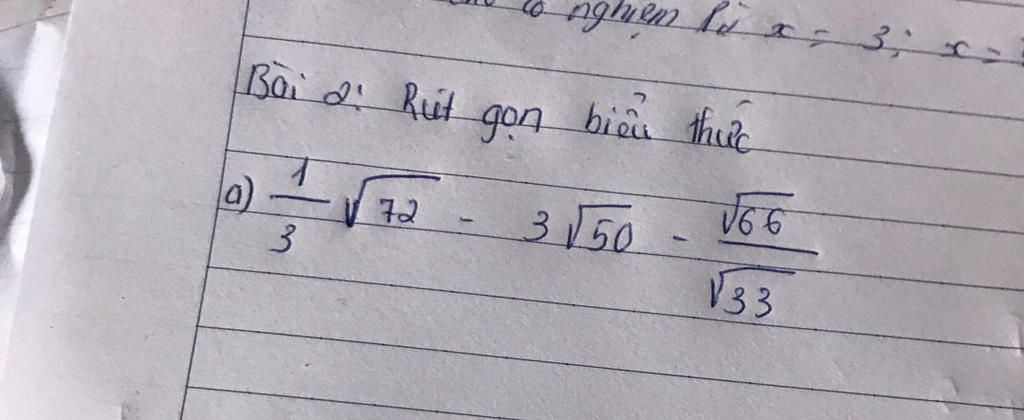 có nghiệm là x = 3; x =
Bài 2: Rút gọn biểu thức
a) 1/3 √72 - 3√50 - √66/√33